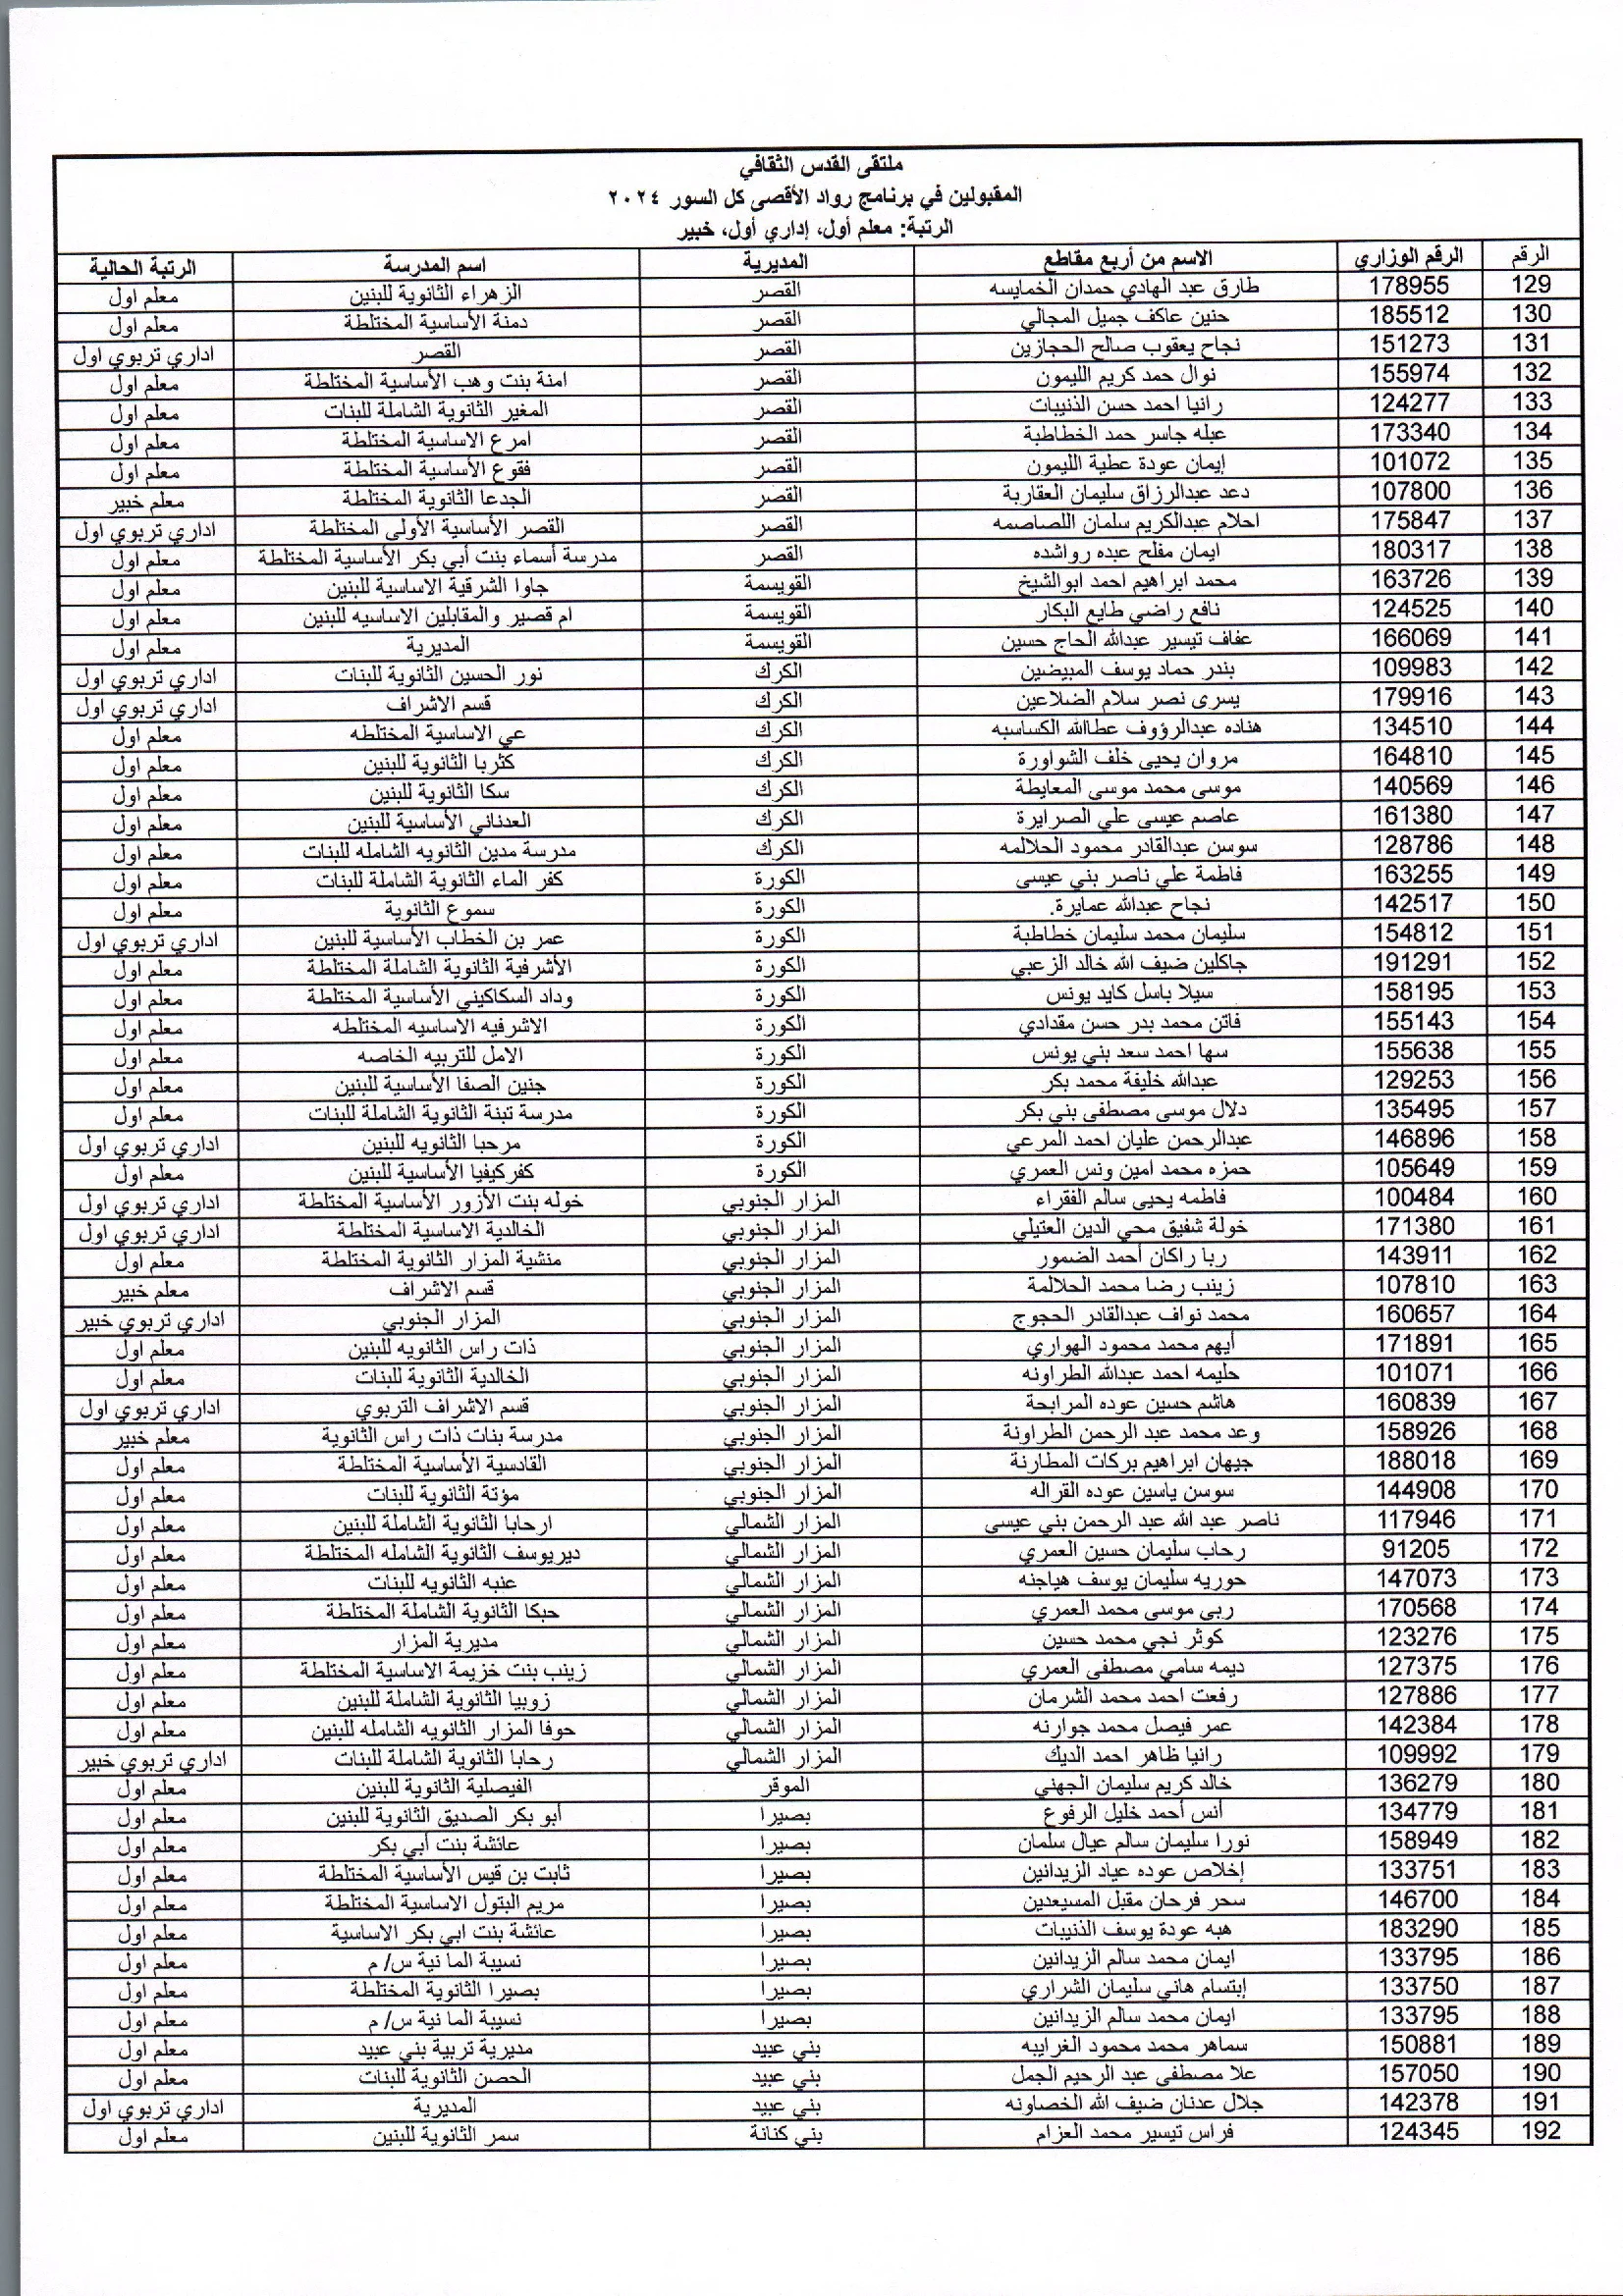 ملتقى القدس الثقافي
المقبولين في برنامج رواد الأقصى كل السور ٢٠٢٤
الرتبة: معلم أول، إداري أول، خبير
الرقم الرقم الوزاري الاسم من أربع مقاطع المديرية اسم المدرسة الرتبة الحالية
129 178955 طارق عبد الهادي حمدان الخمايسه القصر الزهراء الثانوية للبنين معلم اول
130 185512 حنين عاكف جميل المجالي القصر دمنة الأساسية المختلطة معلم اول
131 151273 نجاح يعقوب صالح الحجازين القصر القصر اداري تربوي اول
132 155974 نوال حمد كريم الليمون القصر امنة بنت وهب الأساسية المختلطة معلم اول
133 124277 رانيا احمد حسن الذنيبات القصر المغير الثانوية الشاملة للبنات معلم اول
134 173340 عبله جاسر حمد الخطاطبة القصر امرع الاساسية المختلطة معلم اول
135 101072 إيمان عودة عطية الليمون القصر فقوع الأساسية المختلطة معلم اول
136 107800 دعد عبدالرزاق سليمان العقاربة القصر الجدعا الثانوية المختلطة معلم خبير
137 175847 احلام عبدالكريم سلمان اللصاصمه القصر القصر الأساسية الأولى المختلطة اداري تربوي اول
138 180317 ايمان مفلح عبده رواشده القصر مدرسة أسماء بنت أبي بكر الأساسية المختلطة معلم اول
139 163726 محمد ابراهيم احمد ابوالشيخ القويسمة جاوا الشرقية الاساسية للبنين معلم اول
140 124525 نافع راضي طايع البكار القويسمة ام قصير والمقابلين الاساسيه للبنين معلم اول
141 166069 عفاف تيسير عبدالله الحاج حسين القويسمة المديرية معلم اول
142 109983 بندر حماد يوسف المبيضين الكرك نور الحسين الثانوية للبنات اداري تربوي اول
143 179916 يسرى نصر سلام الضلاعين الكرك قسم الاشراف اداري تربوي اول
144 134510 هناده عبدالرؤوف عطاالله الكساسبه الكرك عي الاساسية المختلطه معلم اول
145 164810 مروان يحيى خلف الشواورة الكرك كثربا الثانوية للبنين معلم اول
146 140569 موسى محمد موسى المعايطة الكرك سكا الثانوية للبنين معلم اول
147 161380 عاصم عيسى علي الصرايرة الكرك العدناني الأساسية للبنين معلم اول
148 128786 سوسن عبدالقادر محمود الحلالمه الكرك مدرسة مدين الثانويه الشامله للبنات معلم اول
149 163255 فاطمة علي ناصر بني عيسى الكورة كفر الماء الثانوية الشاملة للبنات معلم اول
150 142517 نجاح عبدالله عمايرة. الكورة سموع الثانوية معلم اول
151 154812 سليمان محمد سليمان خطاطبة الكورة عمر بن الخطاب الأساسية للبنين اداري تربوي اول
152 191291 جاكلين ضيف الله خالد الزعبي الكورة الأشرفية الثانوية الشاملة المختلطة معلم اول
153 158195 سيلا باسل كايد يونس الكورة وداد السكاكيني الأساسية المختلطة معلم اول
154 155143 فاتن محمد بدر حسن مقدادي الكورة الاشرفيه الاساسيه المختلطه معلم اول
155 155638 سها احمد سعد بني يونس الكورة الامل للتربيه الخاصه معلم اول
156 129253 عبدالله خليفة محمد بكر الكورة جنين الصفا الأساسية للبنين معلم اول
157 135495 دلال موسى مصطفى بني بكر الكورة مدرسة تبنة الثانوية الشاملة للبنات معلم اول
158 146896 عبدالرحمن عليان احمد المرعي الكورة مرحبا الثانويه للبنين اداري تربوي اول
159 105649 حمزه محمد امين ونس العمري الكورة كفركيفيا الأساسية للبنين معلم اول
160 100484 فاطمه يحيى سالم الفقراء المزار الجنوبي خوله بنت الأزور الأساسية المختلطة اداري تربوي اول
161 171380 خولة شفيق محي الدين العتيلي المزار الجنوبي الخالدية الاساسية المختلطة اداري تربوي اول
162 143911 ربا راكان أحمد الضمور المزار الجنوبي منشية المزار الثانوية المختلطة معلم اول
163 107810 زينب رضا محمد الحلالمة المزار الجنوبي قسم الاشراف معلم خبير
164 160657 محمد نواف عبدالقادر الحجوج المزار الجنوبي المزار الجنوبي اداري تربوي خبير
165 171891 أيهم محمد محمود الهواري المزار الجنوبي ذات راس الثانويه للبنين معلم اول
166 101071 حليمه احمد عبدالله الطراونه المزار الجنوبي الخالدية الثانوية للبنات معلم اول
167 160839 هاشم حسين عوده المرابحة المزار الجنوبي قسم الاشراف التربوي اداري تربوي اول
168 158926 وعد محمد عبد الرحمن الطراونة المزار الجنوبي مدرسة بنات ذات راس الثانوية معلم خبير
169 188018 جيهان ابراهيم بركات المطارنة المزار الجنوبي القادسية الأساسية المختلطة معلم اول
170 144908 سوسن ياسين عوده القراله المزار الجنوبي مؤتة الثانوية للبنات معلم اول
171 117946 ناصر عبد الله عبد الرحمن بني عيسى المزار الشمالي ارحابا الثانوية الشاملة للبنين معلم اول
172 91205 رحاب سليمان حسين العمري المزار الشمالي ديريوسف الثانوية الشامله المختلطة معلم اول
173 147073 حوريه سليمان يوسف هياجنه المزار الشمالي عنبه الثانويه للبنات معلم اول
174 170568 ربى موسى محمد العمري المزار الشمالي حبكا الثانوية الشاملة المختلطة معلم اول
175 123276 كوثر نجي محمد حسين المزار الشمالي مديرية المزار معلم اول
176 127375 ديمه سامي مصطفى العمري المزار الشمالي زينب بنت خزيمة الاساسية المختلطة معلم اول
177 127886 رفعت احمد محمد الشرمان المزار الشمالي زوبيا الثانوية الشاملة للبنين معلم اول
178 142384 عمر فيصل محمد جوارنه المزار الشمالي حوفا المزار الثانويه الشامله للبنين معلم اول
179 109992 رانيا ظاهر احمد الديك المزار الشمالي رحابا الثانوية الشاملة للبنات اداري تربوي خبير
180 136279 خالد كريم سليمان الجهني الموقر الفيصلية الثانوية للبنين معلم اول
181 134779 أنس أحمد خليل الرفوع بصيرا أبو بكر الصديق الثانوية للبنين معلم اول
182 158949 نورا سليمان سالم عيال سلمان بصيرا عائشة بنت أبي بكر معلم اول
183 133751 إخلاص عوده عياد الزيدانين بصيرا ثابت بن قيس الأساسية المختلطة معلم اول
184 146700 سحر فرحان مقبل المسيعدين بصيرا مريم البتول الاساسية المختلطة معلم اول
185 183290 هبه عودة يوسف الذنيبات بصيرا عائشة بنت ابي بكر الاساسية معلم اول
186 133795 ايمان محمد سالم الزيدانين بصيرا نسيبة الما نية س/ م معلم اول
187 133750 إبتسام هاني سليمان الشراري بصيرا بصيرا الثانوية المختلطة معلم اول
188 133795 ايمان محمد سالم الزيدانين بصيرا نسيبة الما نية س/ م معلم اول
189 150881 سماهر محمد محمود الغرايبه بني عبيد مديرية تربية بني عبيد معلم اول
190 157050 علا مصطفى عبد الرحيم الجمل بني عبيد الحصن الثانوية للبنات معلم اول
191 142378 جلال عدنان ضيف الله الخصاونه بني عبيد المديرية اداري تربوي اول
192 124345 فراس تيسير محمد العزام بني كنانة سمر الثانوية للبنين معلم اول